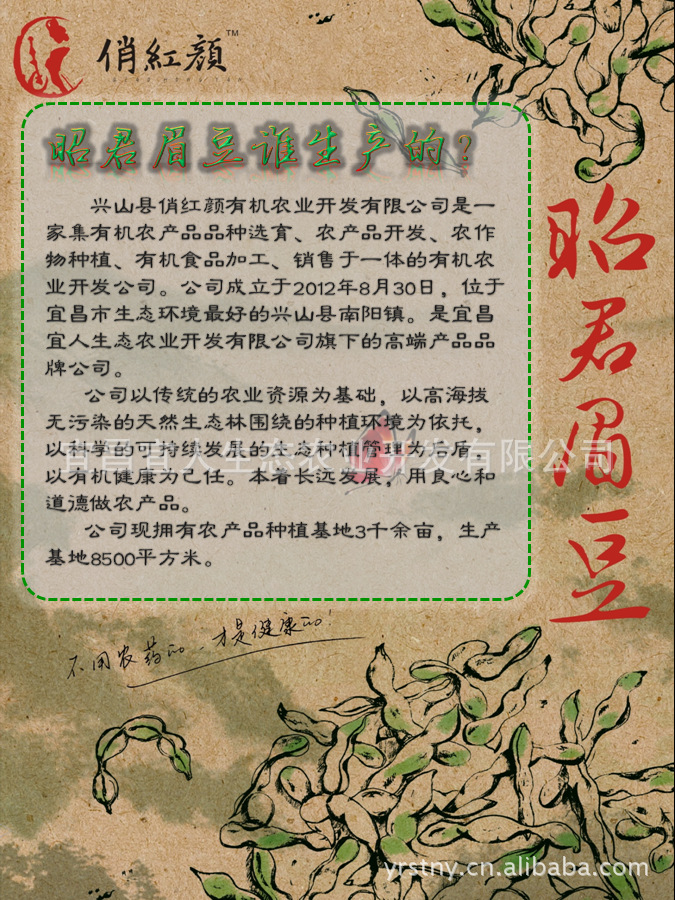 俏紅顔™
昭君眉豆谁生产的？
兴山县俏红颜有机农业开发有限公司是一
家集有机农产品品种选育、农产品开发、农作
物种植、有机食品加工、销售于一体的有机农
业开发公司。公司成立于2012年8月30日，位于
宜昌市生态环境最好的兴山县南阳镇。是宜昌
宜人生态农业开发有限公司旗下的高端产品品
牌公司。
公司以传统的农业资源为基础，以高海拔
无污染的天然生态林围绕的种植环境为依托，
以科学的可持续发展的生态种植管理为后盾，
以有机健康为己任。本着长远发展，用良心和
道德做农产品。
公司现拥有农产品种植基地3千余亩，生产
基地8500平方米。
昭君眉豆
宜昌宜人生态农业开发有限公司
不用农药的，才是健康的！
yrstny.cn.alibaba.com